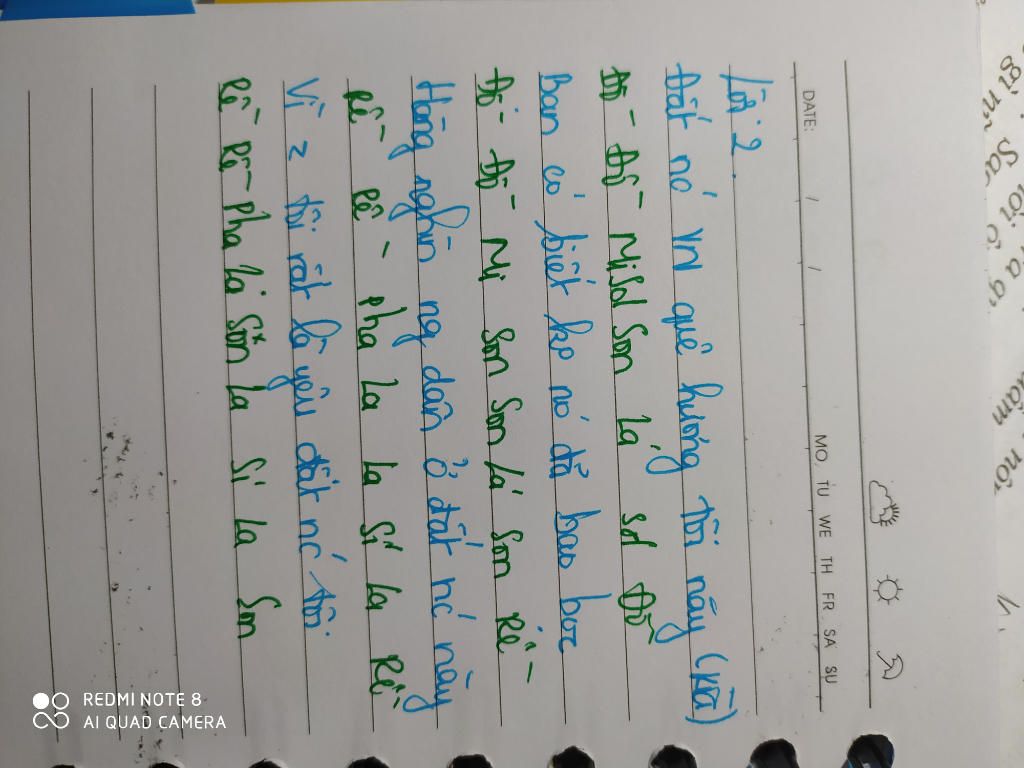 DATE: / /
MO TU WE TH FR SA SU
Lời 2.
Đất nć VN quê hương tôi nãy (nãy)
Đố - Đố - Mi Sol Son lá sol Đố
Bạn có biết ko nó đã bao bọc
Đố - Đố - Mi Son Son lá Son Rế -
Hàng nghìn ng dân ở đất nć này
Rế - Rế - pha la la Si la Rế -
Vì z tôi rất là yêu đất nć tôi
Rế - Rế - Pha lá Son la Si la Son
REDMI NOTE 8
AI QUAD CAMERA